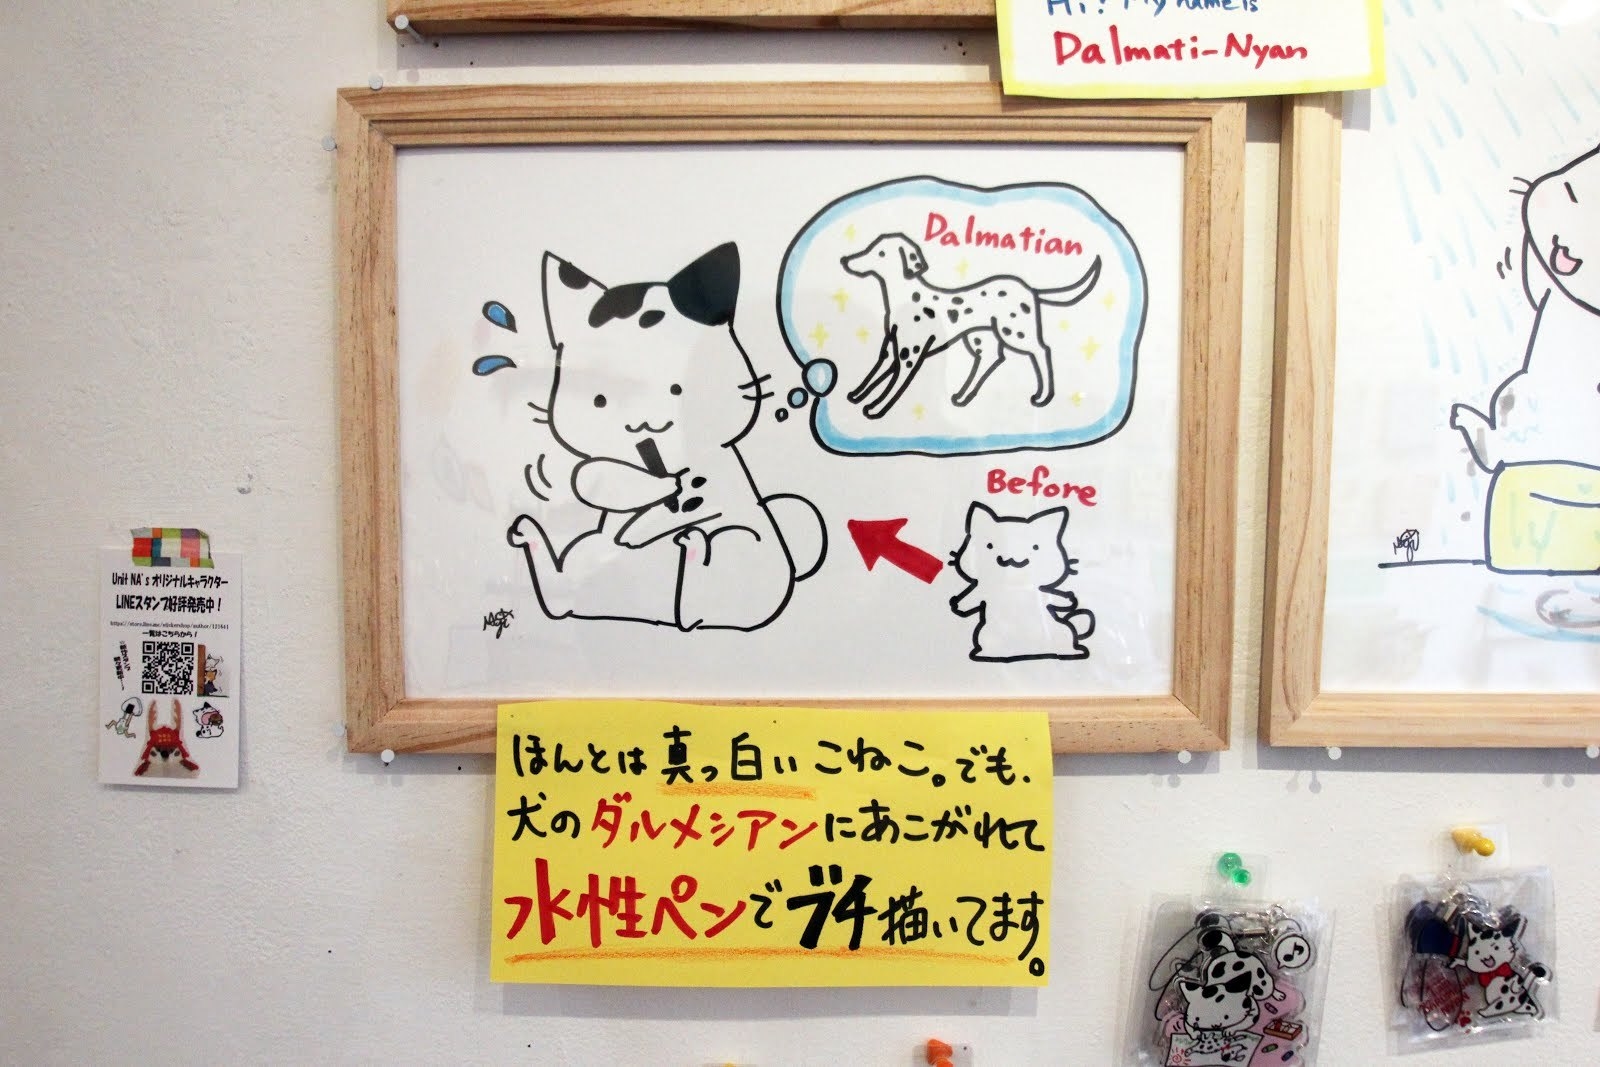 Hi! My name is
Dalmati-Nyan
Dalmatian
Before
ほんとは真っ白いこねこ。でも、
犬のダルメシアンにあこがれて
水性ペンでブチ描いてます。
Unit NA's オリジナルキャラクター
LINEスタンプ好評発売中！
一覧はこちらから！